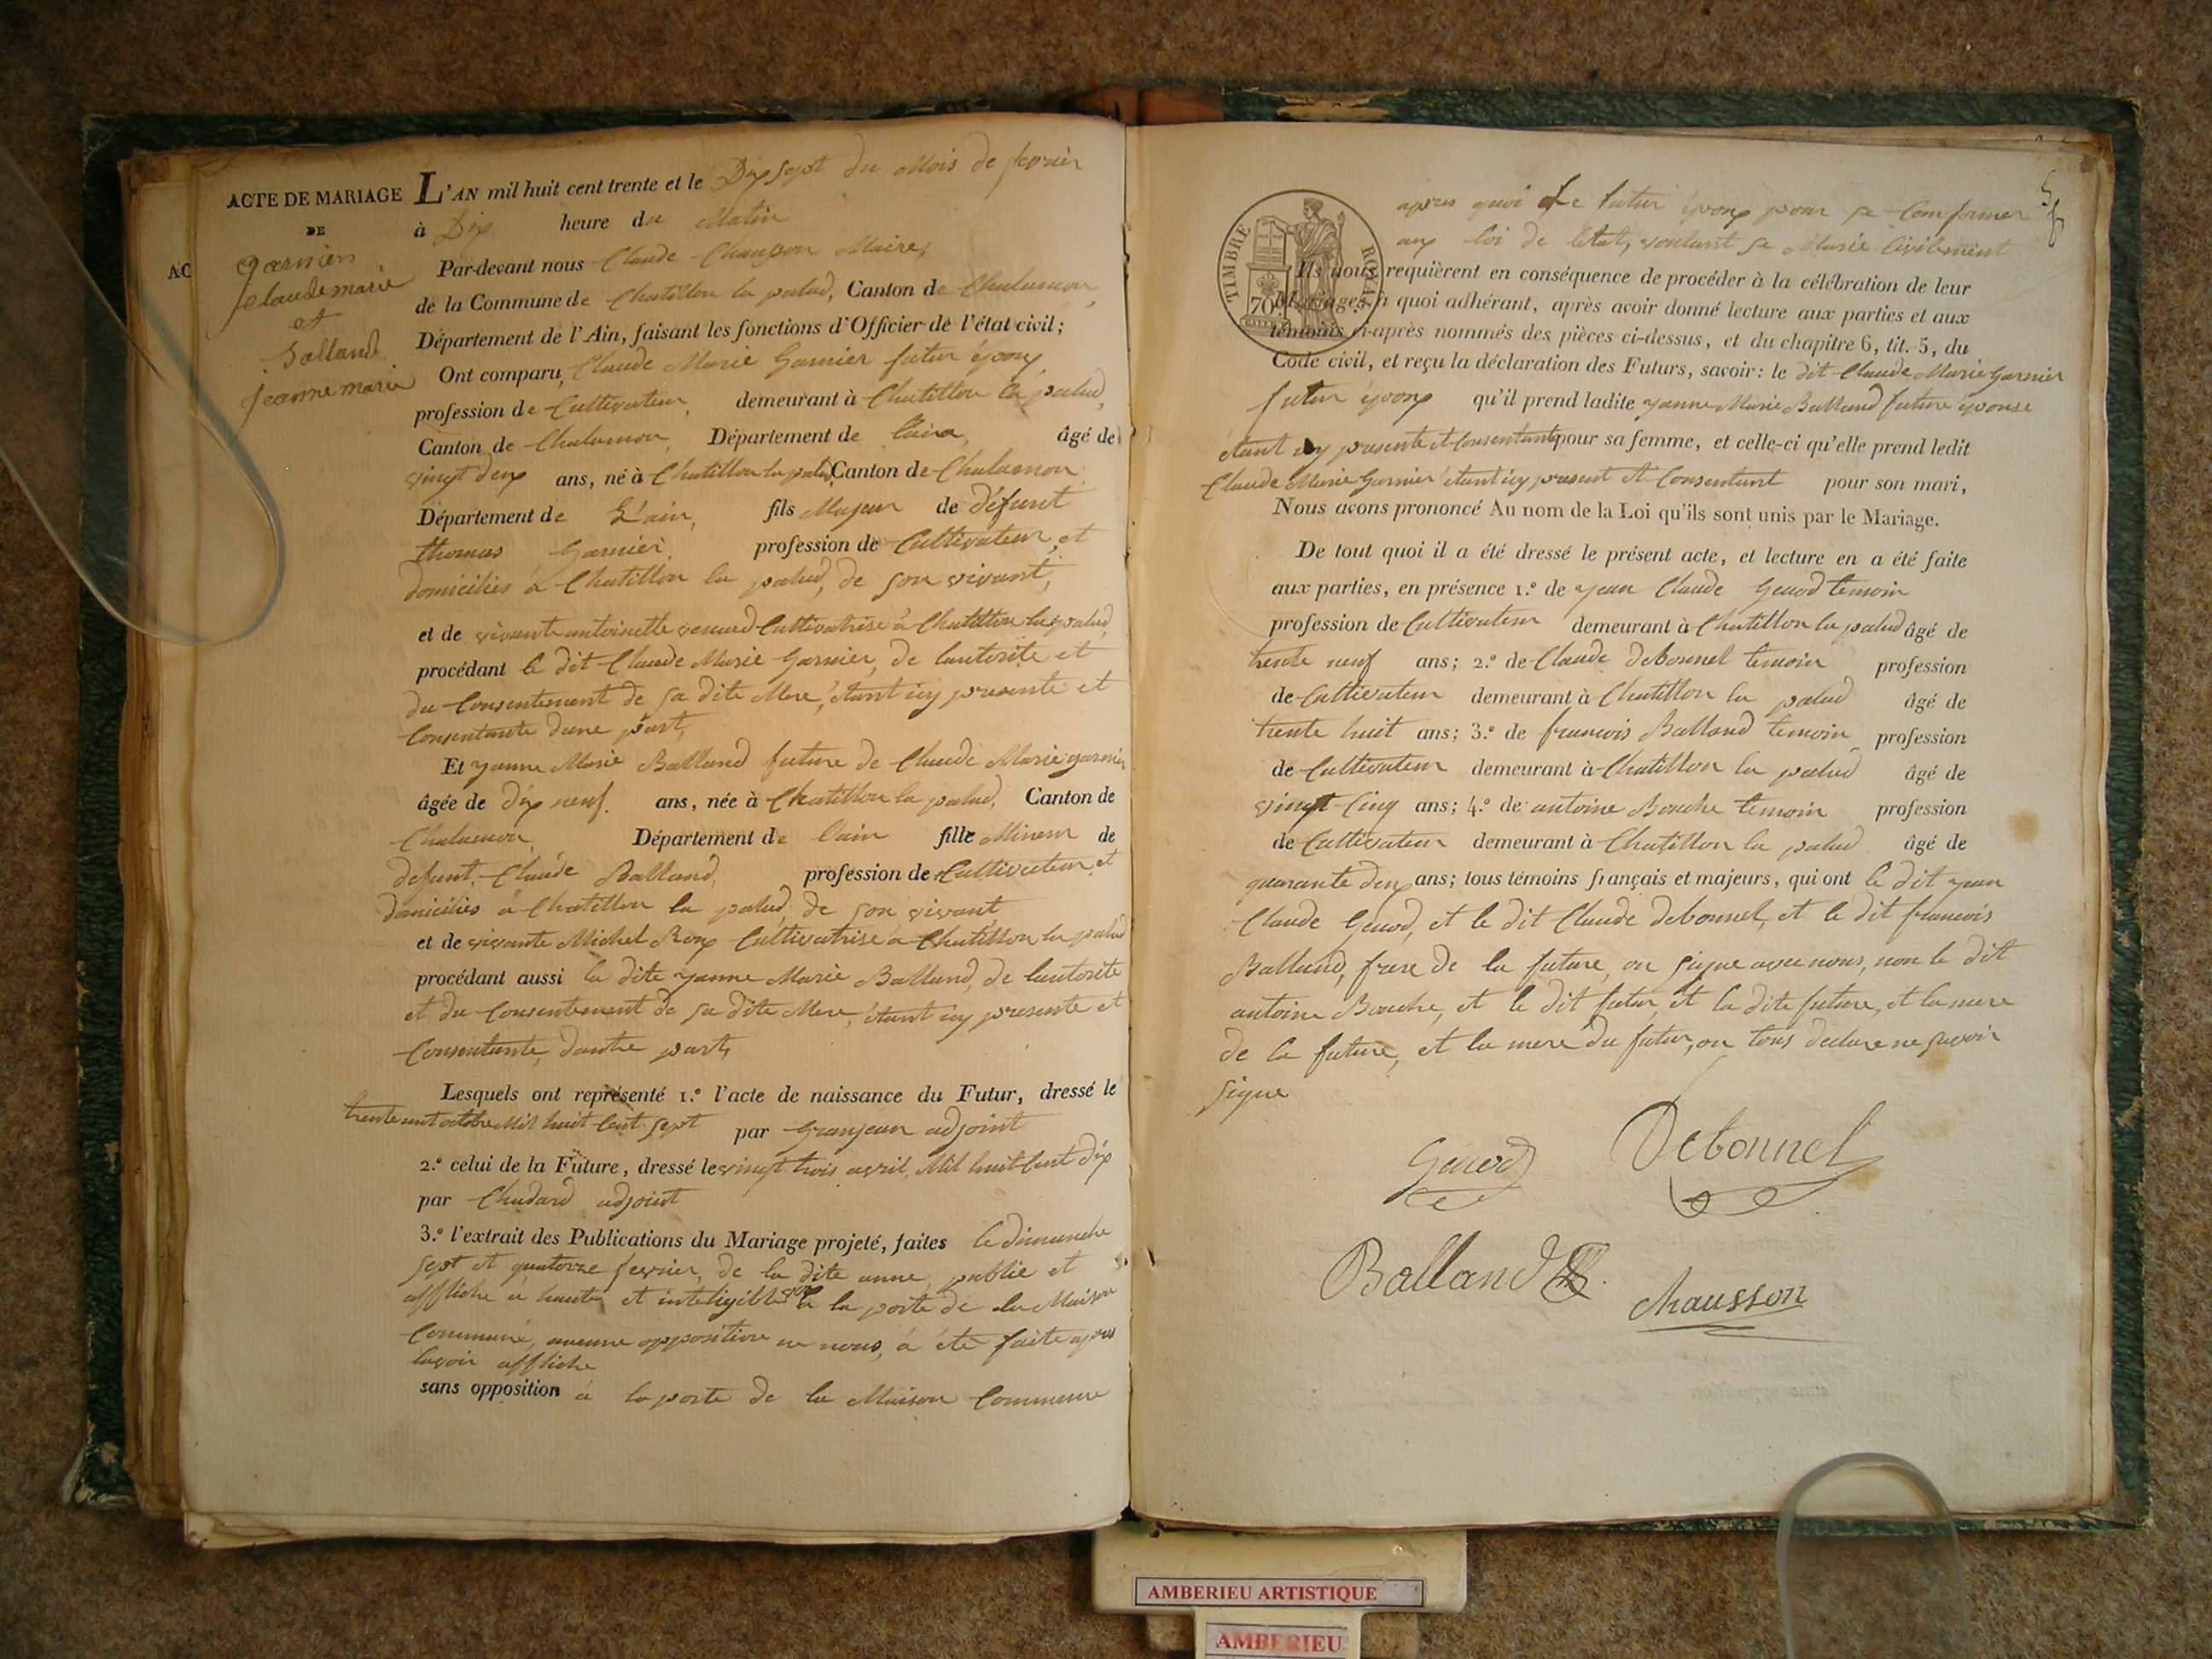 ACTE DE MARIAGE
DE
garnier
claude marie
et
Balland
jeanne marie
AC
L'AN mil huit cent trente et le Dix sept du Mois de fevrier
à Dix heure du Matin
Par-devant nous Claude Chausson Maire,
de la Commune de Chatillon la palud, Canton de Chalamon,
Département de l'Ain, faisant les fonctions d'Officier de l'état civil;
Ont comparu, Claude Marie Garnier futur époux
profession de Cultivateur, demeurant à Chatillon la palud,
Canton de Chalamon, Département de l'ain, âgé de
vingt deux ans, né à Chatillon la palud, Canton de Chalamon
Département de L'ain, fils Majeur de défunt
thomas Garnier, profession de Cultivateur, et
domicilies à Chatillon la palud, de son vivant,
et de vivante antoinette venard Cultivatrise à Chatillon la palud,
procédant le dit Claude Marie Garnier, de lautorite et
du Consentement de sa dite Mere, étant icy presente et
Consentante dune part,
Et yanne Marie Balland future de Claude Marie garnier
âgée de dix neuf. ans, née à Chatillon la palud, Canton de
Chalamon, Département de l'ain fille Mineur de
defunt, Claude Balland, profession de Cultivateur, et
domicilies à Chatillon la palud, de son vivant
et de vivante Michel Roux Cultivatrise à Chatillon la palud
procédant aussi la dite yanne Marie Balland, de lautorite
et du Consentement de sa dite Mere, étant icy presente et
Consentante, dautre part,
Lesquels ont représenté 1.º l'acte de naissance du Futur, dressé le
trente unt octobre Mil huit Cent sept par Granjean adjoint
2.º celui de la Future, dressé le vingt trois avril, Mil huit Cent dix
par Chudard adjoint
3.º l'extrait des Publications du Mariage projeté, faites le dimanche
sept et quatorze fevrier, de la dite anne, publie et
affliche à haute et inteligible voix à la porte de la Maison
Commune, aucune opposition ne nous, à été faite apres
lavoir affliche
sans opposition à la porte de la Maison Commune
apres quoi Le futur époux pour se Comformer
aux loi de letat, voulant se Marié Civilement
TIMBRE ROYAL
70
Ils nous requièrent en conséquence de procéder à la célébration de leur
Mariage; à quoi adhérant, après avoir donné lecture aux parties et aux
témoins ci-après nommés des pièces ci-dessus, et du chapitre 6, tit. 5, du
Code civil, et reçu la déclaration des Futurs, savoir: le dit Claude Marie Garnier
futur époux qu'il prend ladite yanne Marie Balland future épouse
étant icy presente et Consentante pour sa femme, et celle-ci qu'elle prend ledit
Claude Marie Garnier étant icy present et Consentant pour son mari,
Nous avons prononcé Au nom de la Loi qu'ils sont unis par le Mariage.
De tout quoi il a été dressé le présent acte, et lecture en a été faite
aux parties, en présence 1.º de yean Claude Genod temoin
profession de Cultivateur demeurant à Chatillon la palud âgé de
trente neuf ans; 2.º de Claude debonnel temoin profession
de Cultivateur demeurant à Chatillon la palud âgé de
trente huit ans; 3.º de francois Balland temoin profession
de Cultivateur demeurant à Chatillon la palud âgé de
vingt Cinq ans; 4.º de antoine Bouche temoin profession
de Cultivateur demeurant à Chatillon la palud âgé de
quarante deux ans; tous témoins français et majeurs, qui ont le dit yean
Claude Genod, et le dit Claude debonnel, et le dit francois
Balland, frere de la future, on signe avec nous, non le dit
antoine Bouche, et le dit futur, et la dite future, et la mere
de la future, et la mere du futur, on tous declare ne savoir
signe
Genod Debonnel
Balland
chausson
AMBERIEU ARTISTIQUE
AMBERIEU